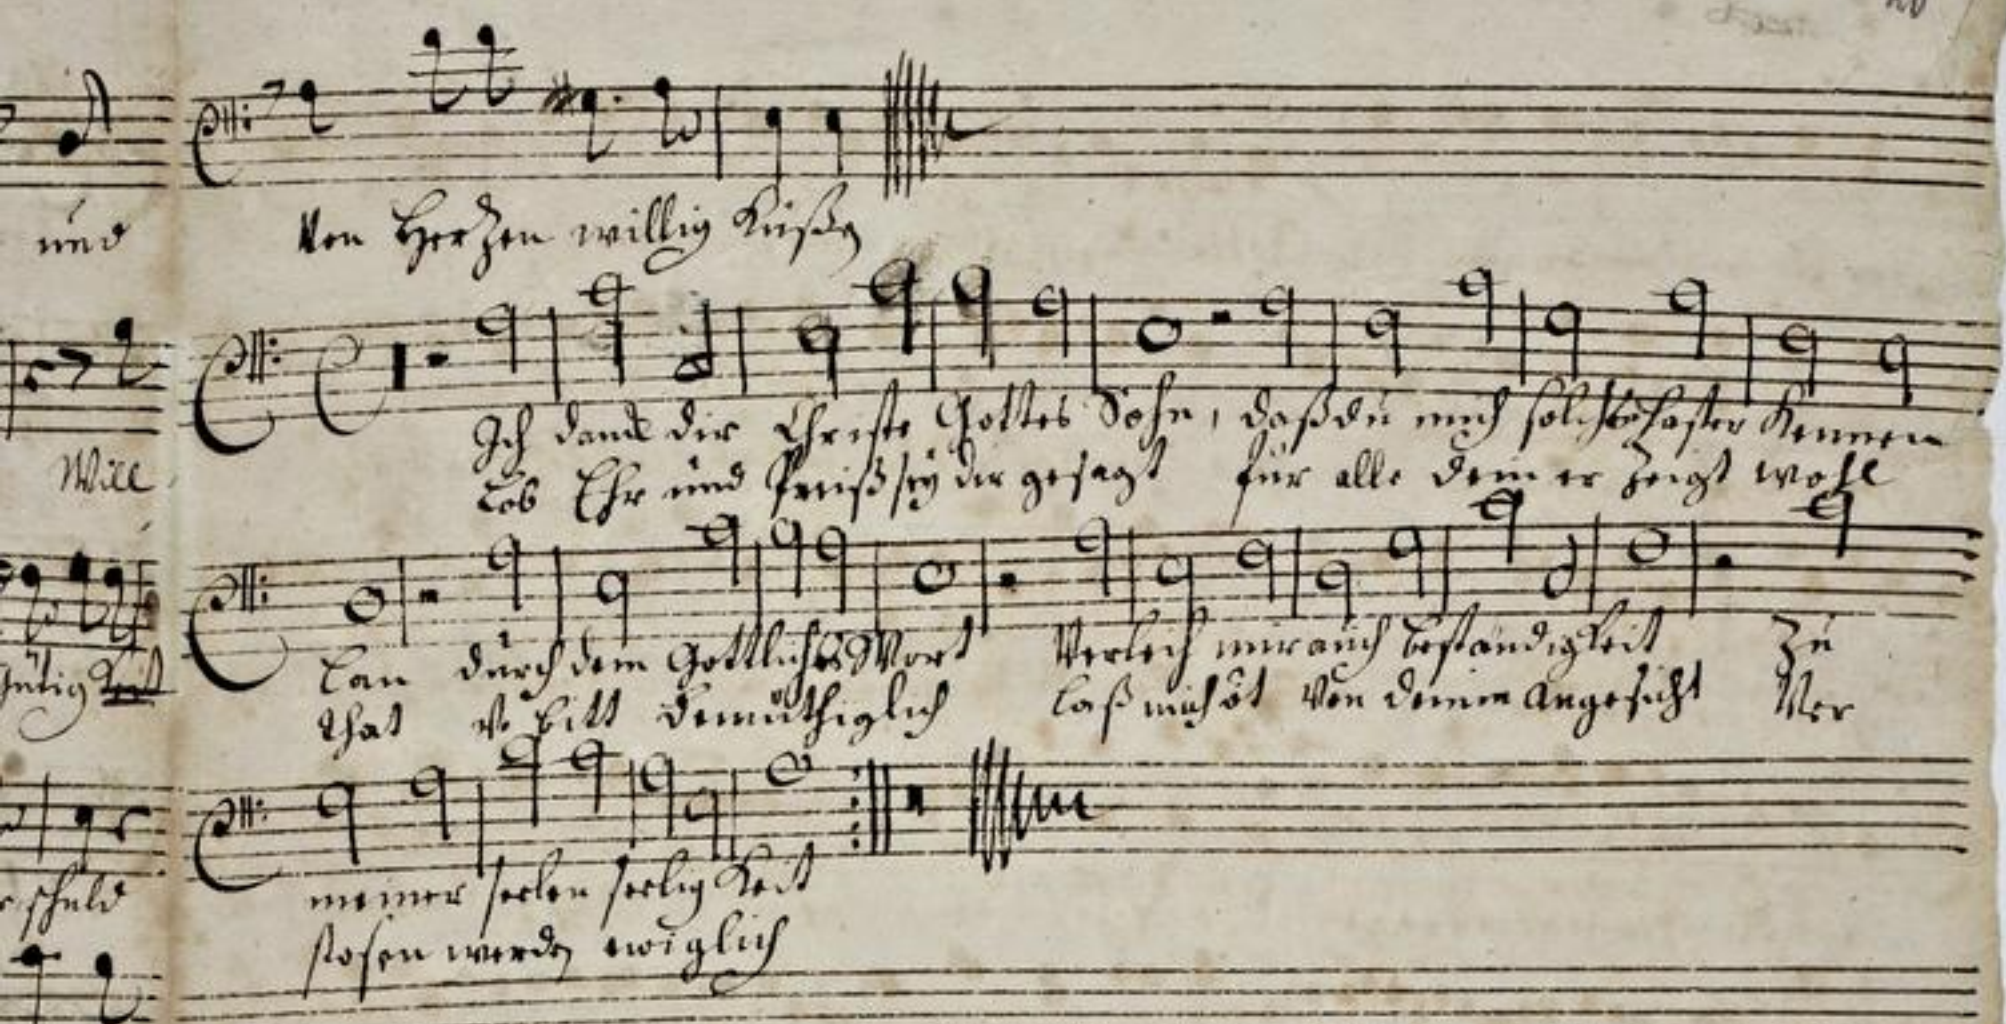 und Von Hertzen willig Küße
Ich danck dir Christe Gottes Sohn, daß du mich solchs hast er Kennen
Will Lob Ehr und Preiß sey dir gesagt für alle dein er zeigt wohl
lan durch dein Gottlichs Wort Verleih mir auch bestandigkeit zu
gütig Keit that bitt demüthiglich laß mich nit von deinem Angesicht Ver
meiner seelen seelig Keit
schuld stosen werden ewiglich